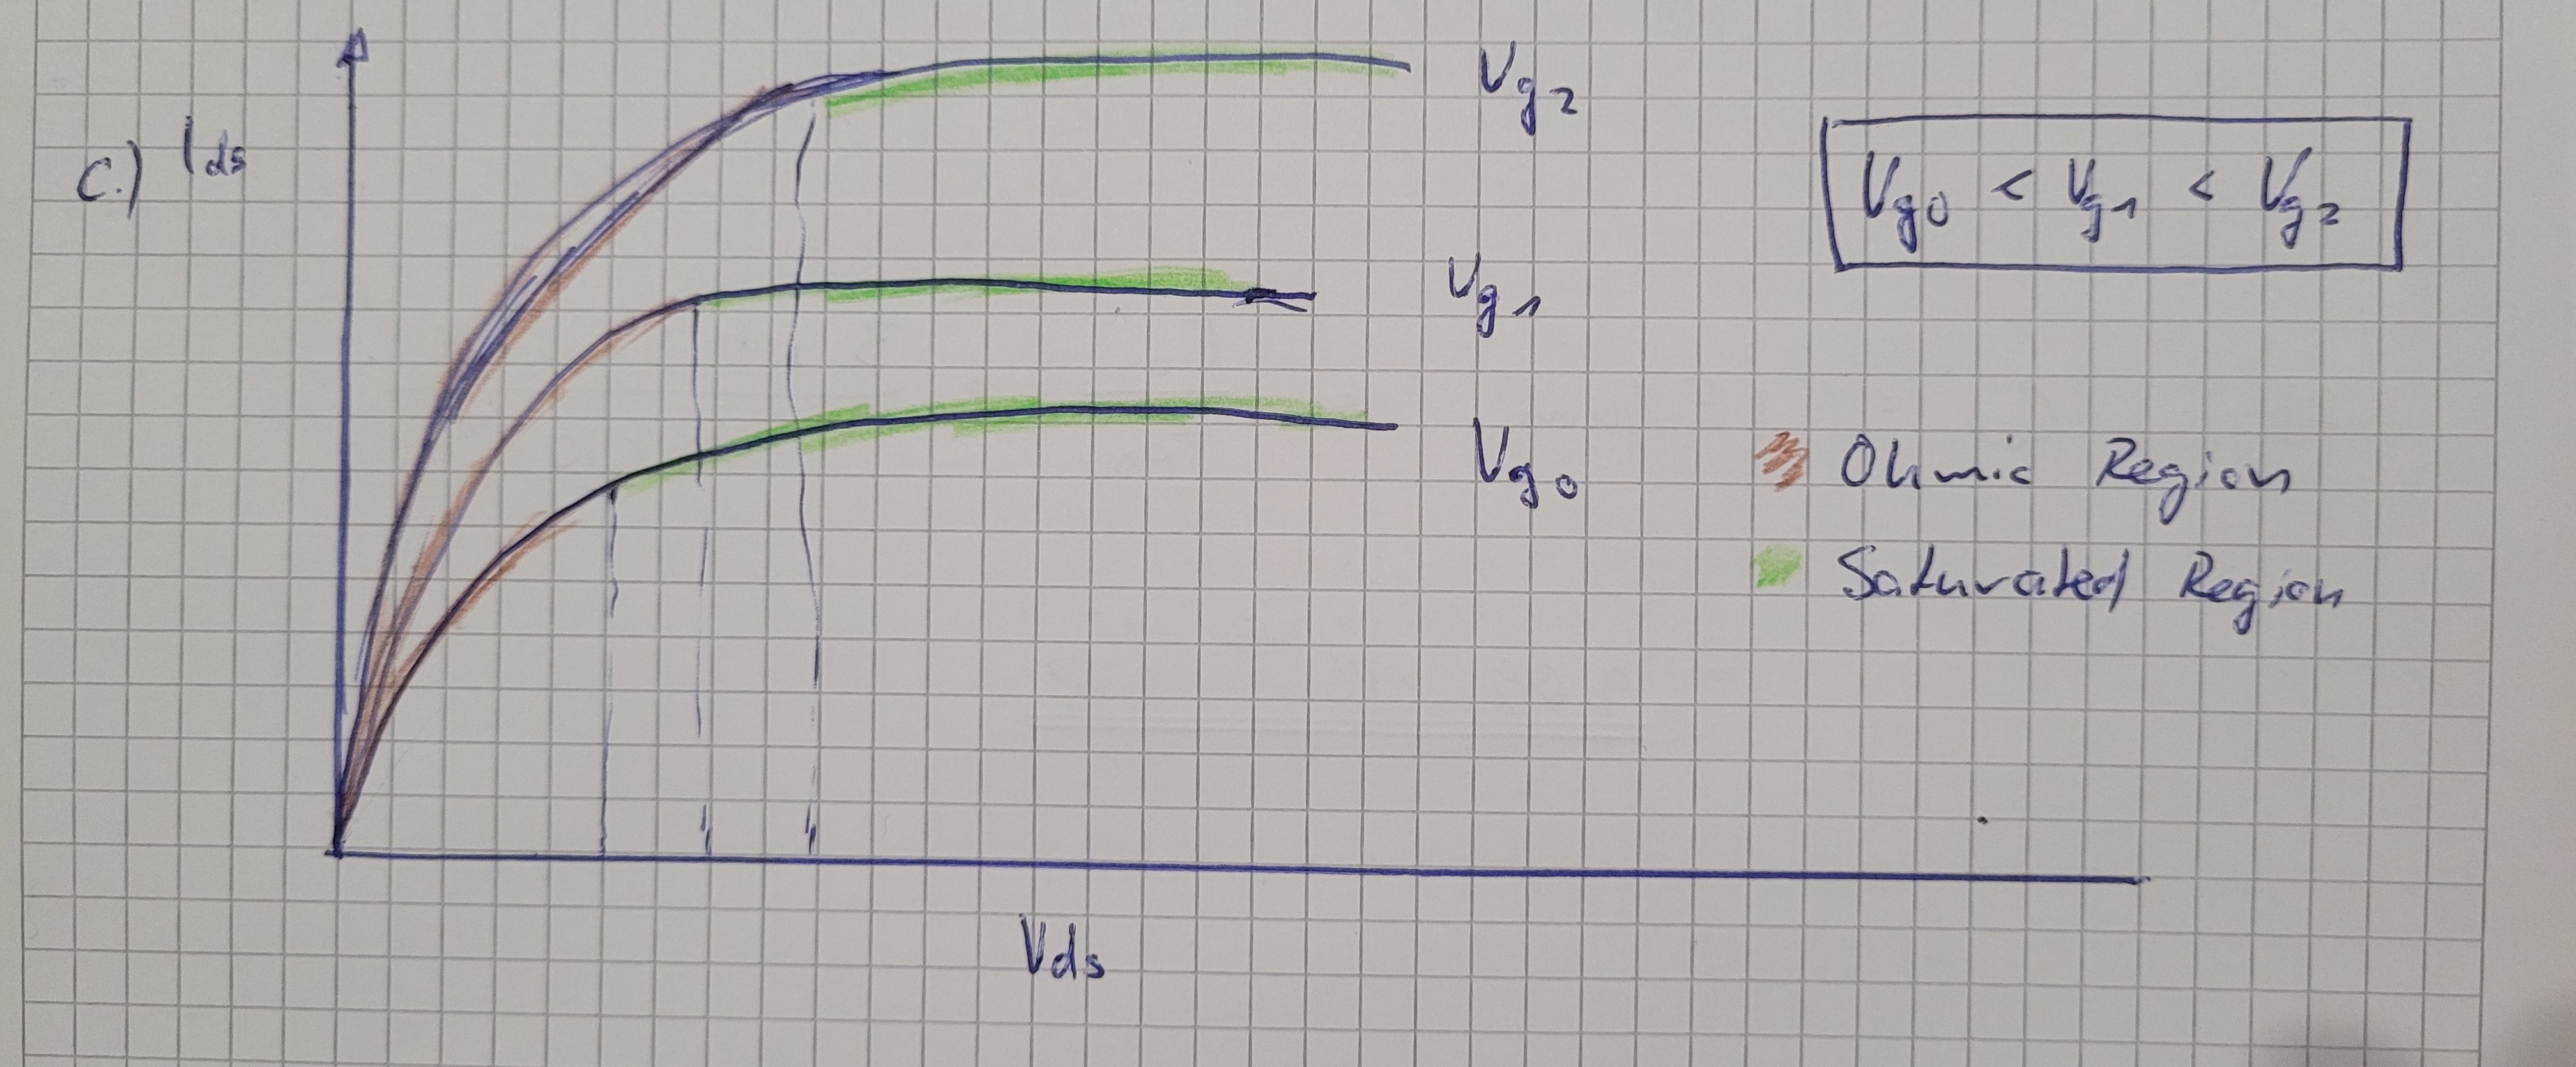 c.) Ids
Vg2
Vg0 < Vg1 < Vg2
Vg1
Vg0
Ohmic Region
Saturated Region
Vds